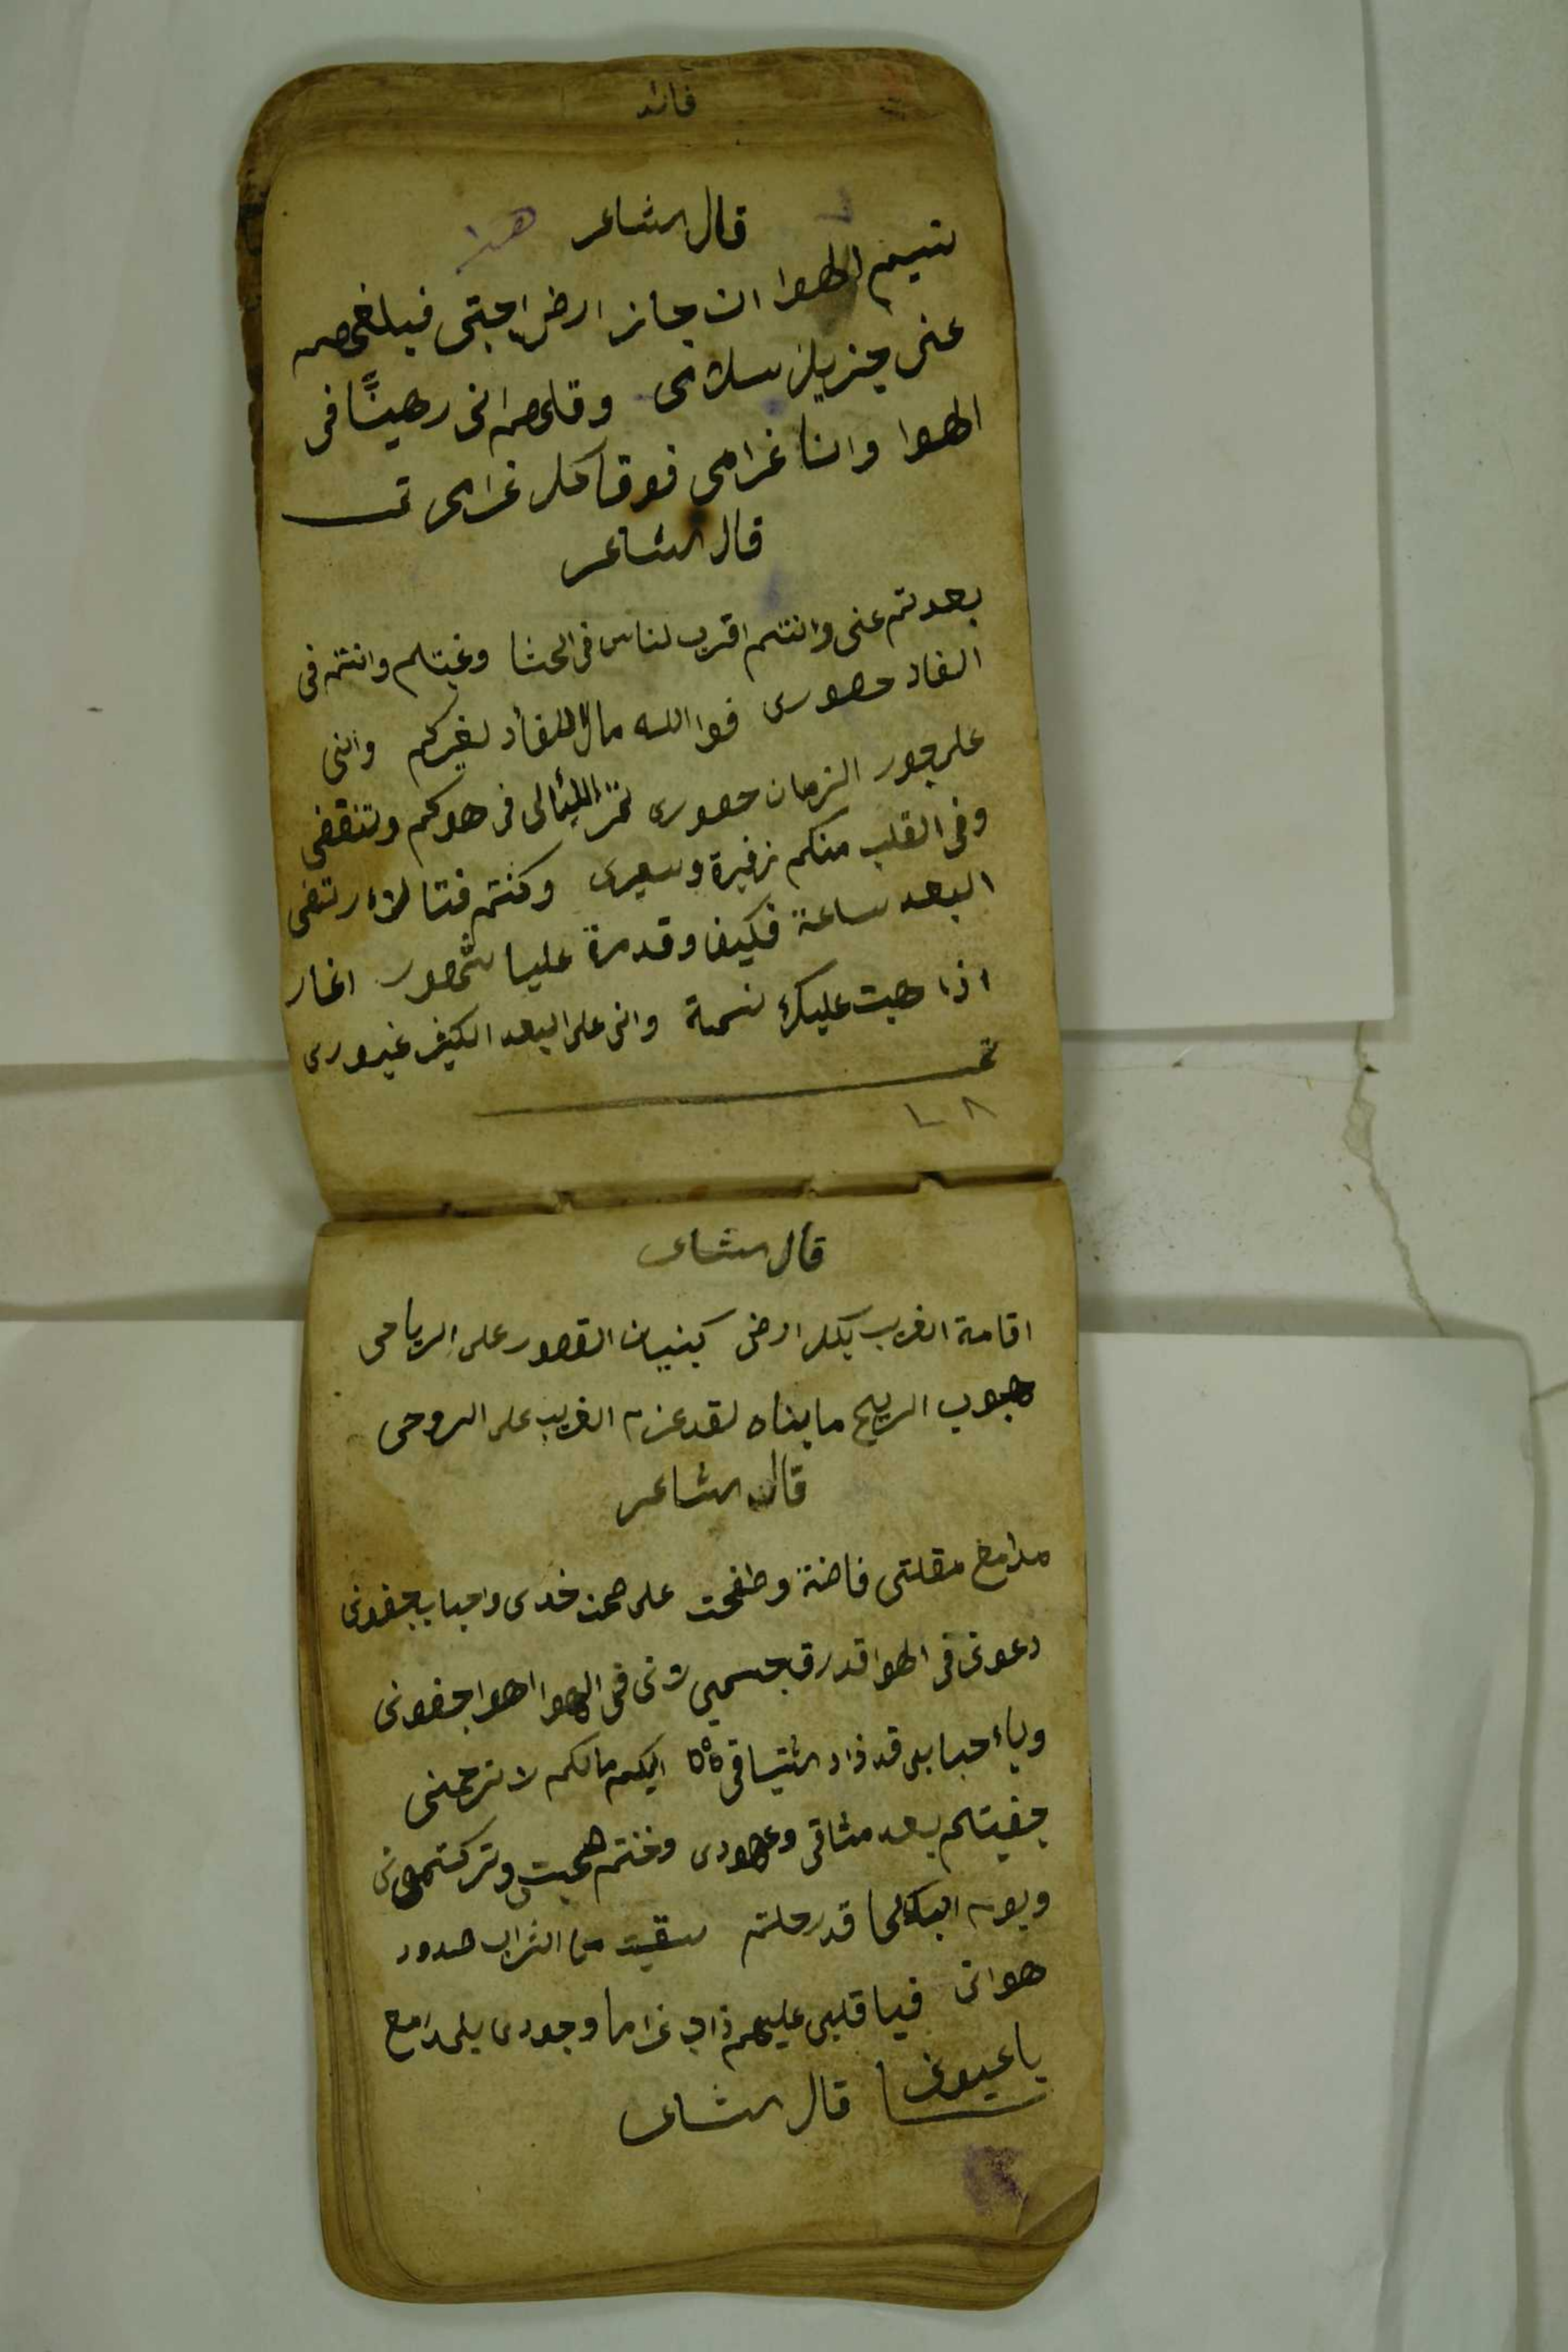 قال الشاعر هذا
نسيم الهوا ان جاز ارض احبتي فبلغهم
عني جزيل سلامي وقلهم اني رهينًا في
الهوا وانا غرامي فوقا كل غرامي تمت
قال الشاعر
بعدتم عني وانتم اقرب لناس في الحشا وغبتم وانتم في
الفاد حصوري فوا الله مال الفأد لغيركم وانني
على جور الزمان صبوري تمر الليالي في هوكم وتنقضي
وفي القلب منكم زفيرة وسعيري وكنتم فتا لاء رتضي
البعد ساعة فكيف وقد مرة عليا شهور اغار
اذا هبت عليك نسمة واني على البعد الكثير غيوري
تمت
قال الشاعر
اقامة الغريب بكل ارض كبنيان القصور على الرياحي
هبوب الريح ما بناه لقد عزم الغريب على الروحي
قال الشاعر
مدامع مقلتي فاضة وطفحت على صحن خدي واحباب جفوني
دعوني في الهوا قد رق جسمي لاني في الهوا اهوا جفوني
ويا احبابي قد ذاد اشتياقي اليكم مالكم لا ترحمني
جفيتم بعد مثاقي وعهودي وخنتم صحبتي وتركتموني
ويوم البكا لما قد رحلتم سقيت من التراب صدود
هواني فيا قلبي عليهم ذاب غراما وجودي بلمدامع
يا عيوني قال الشاعر